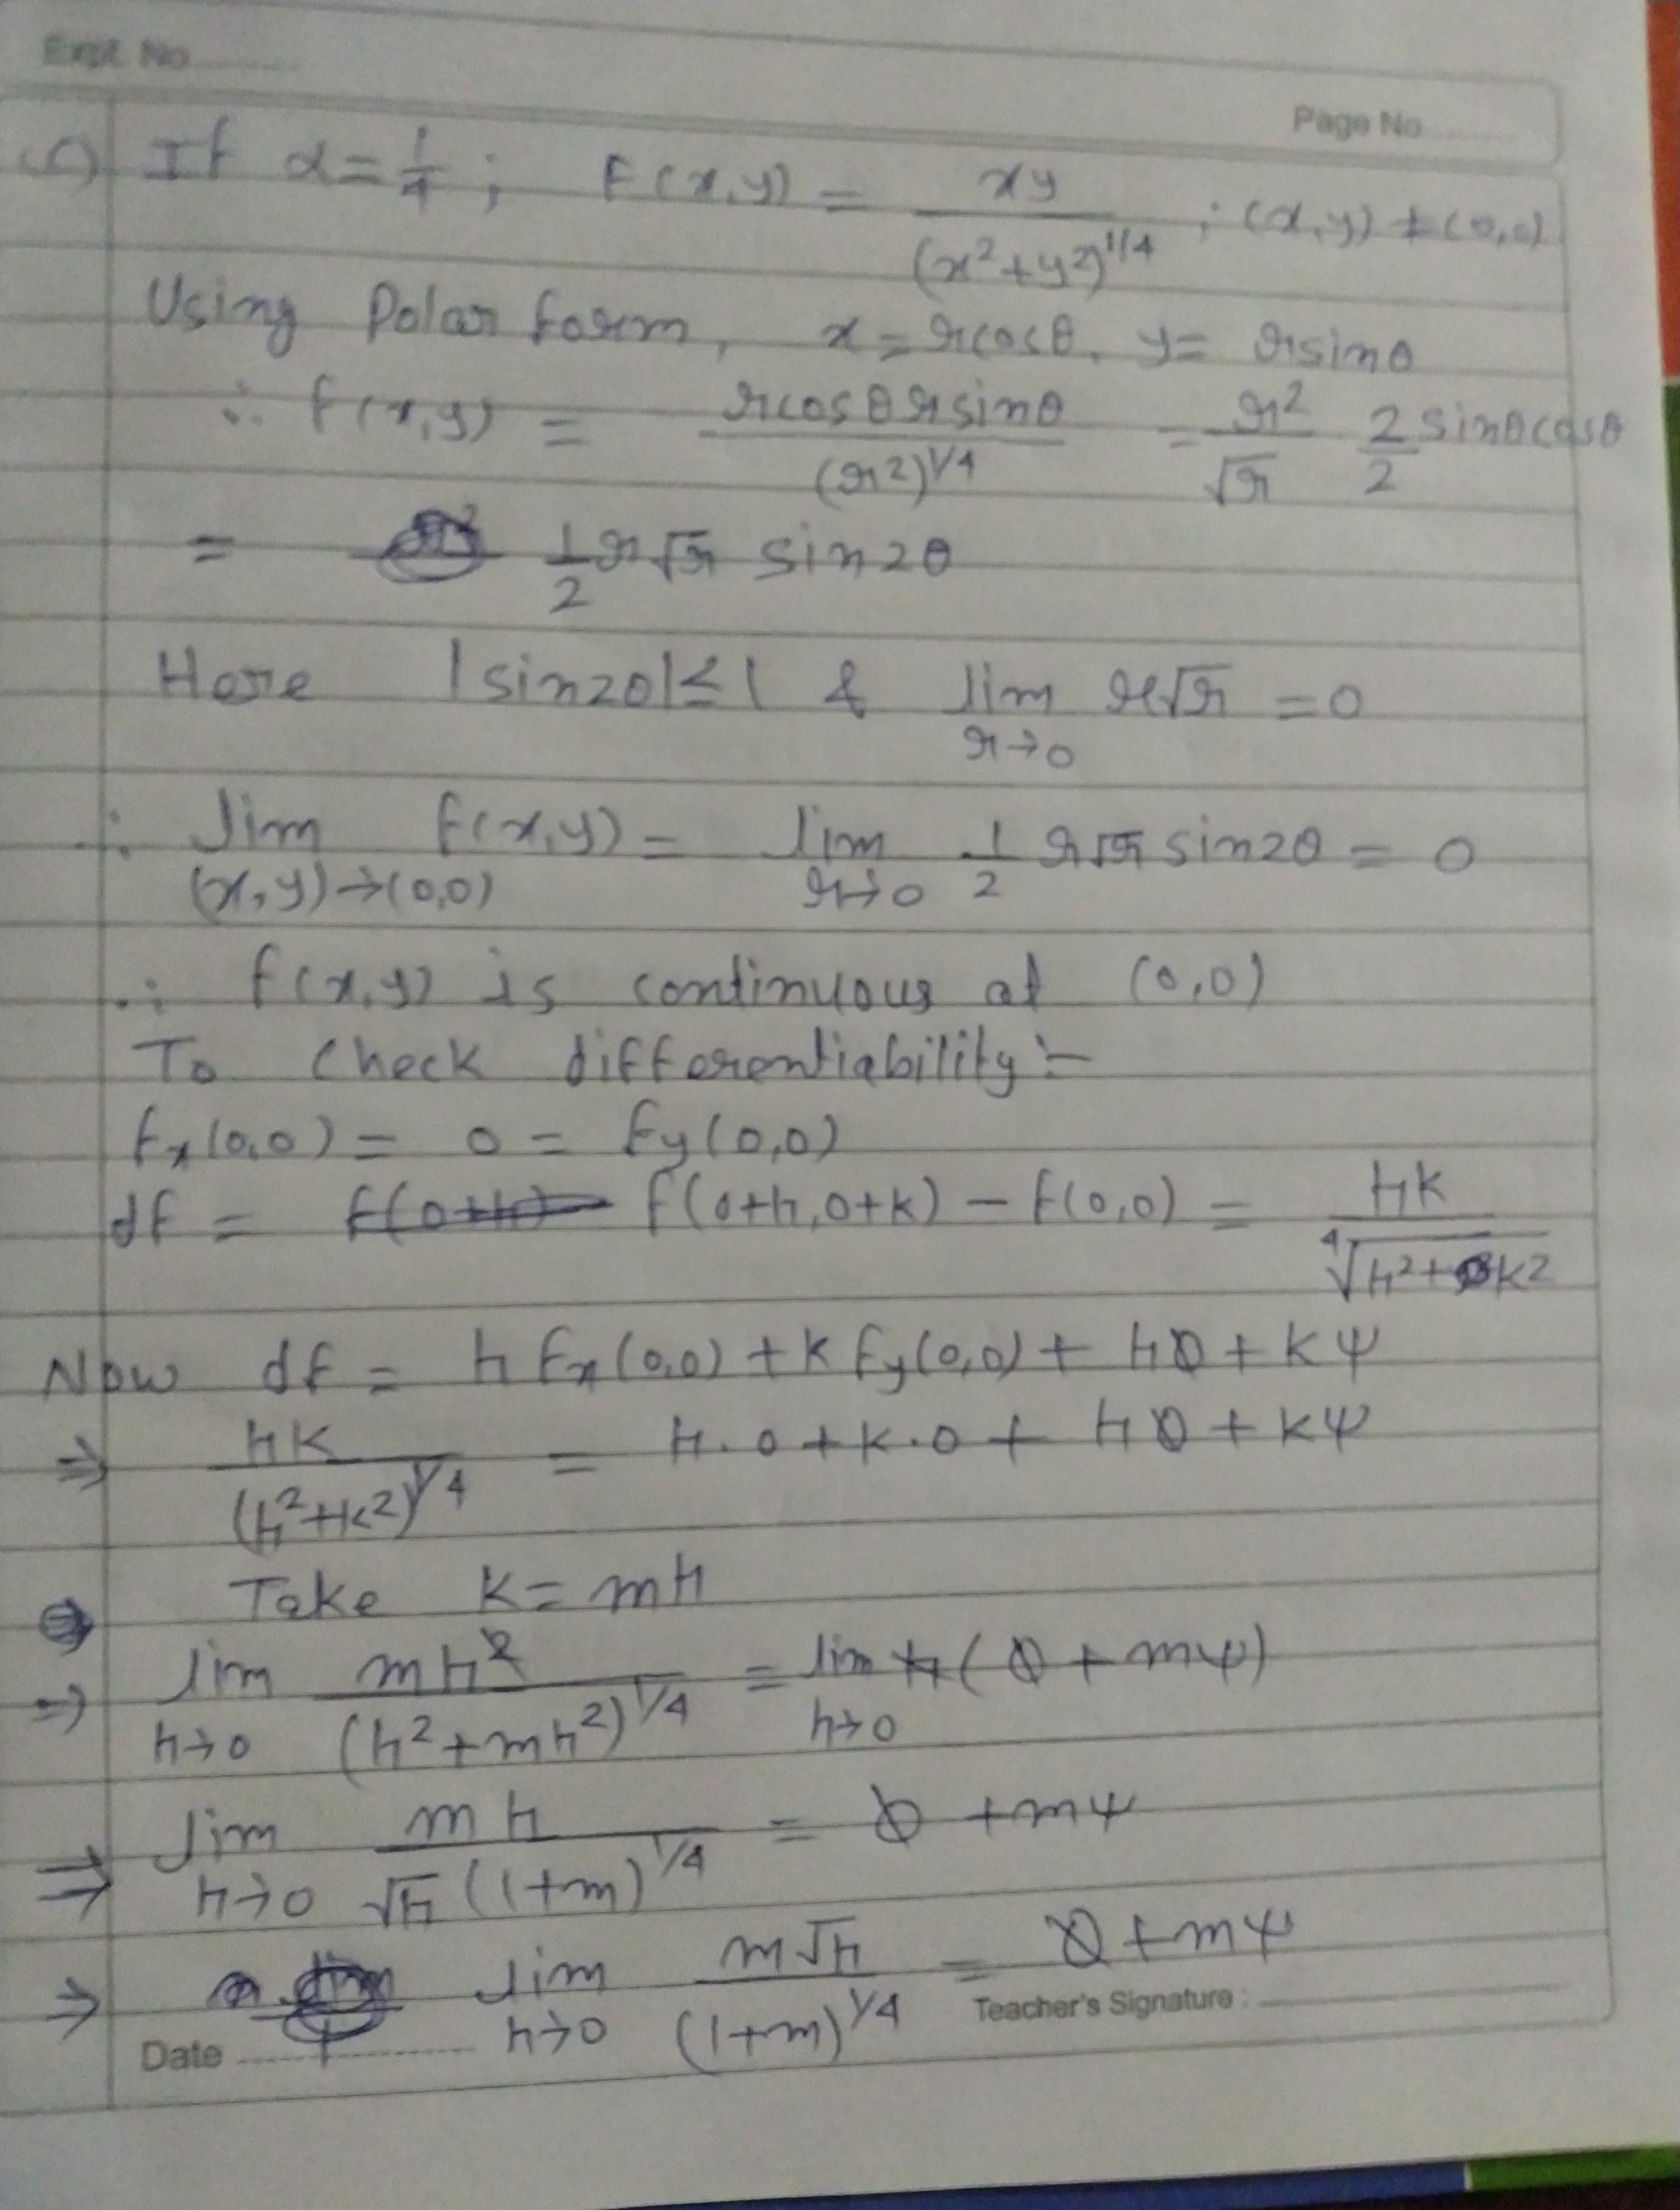 Expt. No.
Page No.
c) If α = 1/4 ; f(x,y) = xy / (x²+y²)^1/4 ; (x,y) ≠ (0,0)
Using Polar form, x = rcosθ, y = rsinθ
∴ f(x,y) = rcosθ rsinθ / (r²)^1/4 = r²/√r 2/2 sinθcosθ
= 1/2 r√r sin2θ
Here |sin2θ| ≤ 1 & lim r→0 r√r = 0
∴ lim (x,y)→(0,0) f(x,y) = lim r→0 1/2 r√r sin2θ = 0
∴ f(x,y) is continuous at (0,0)
To check differentiability :-
fx(0,0) = 0 = fy(0,0)
df = f(0+h, 0+k) - f(0,0) = hk / ∜(h²+k²)
Now df = h fx(0,0) + k fy(0,0) + hϕ + kψ
⇒ hk / (h²+k²)^1/4 = h.0 + k.0 + hϕ + kψ
Take k = mh
⇒ lim h→0 mh² / (h²+mh²)^1/4 = lim h→0 h(ϕ + mψ)
⇒ lim h→0 mh / √h (1+m)^1/4 = ϕ + mψ
⇒ lim h→0 m√h / (1+m)^1/4 = ϕ + mψ
Teacher's Signature :
Date